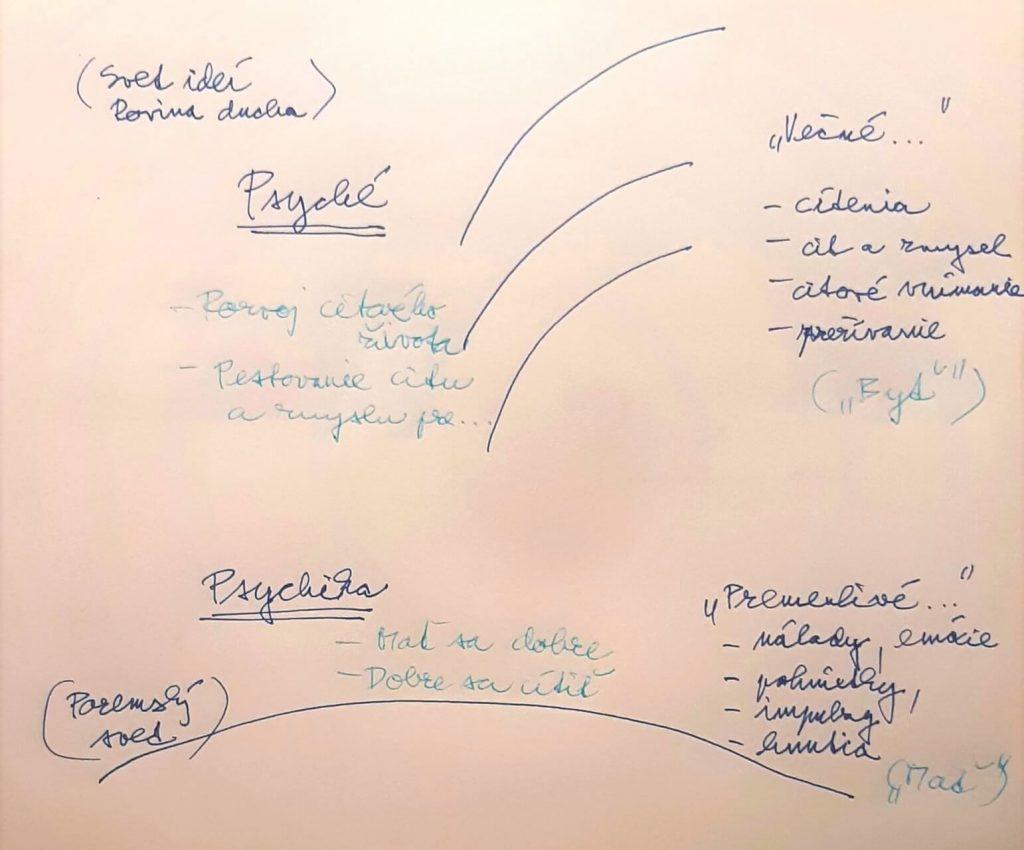 (Svet ideí
Rovina ducha)
Psyché
- Rozvoj citového
života
- Pestovanie citu
a zmyslu pre...
„Večné..."
- cítenia
- cit a zmysel
- citové vnímanie
- prežívanie
(„Byť")
Psychika
- Mať sa dobre
- Dobre sa cítiť
(Pozemský
svet)
„Premenlivé..."
- nálady, emócie
- pohnútky,
- impulzy
- hnutia
(„Mať")